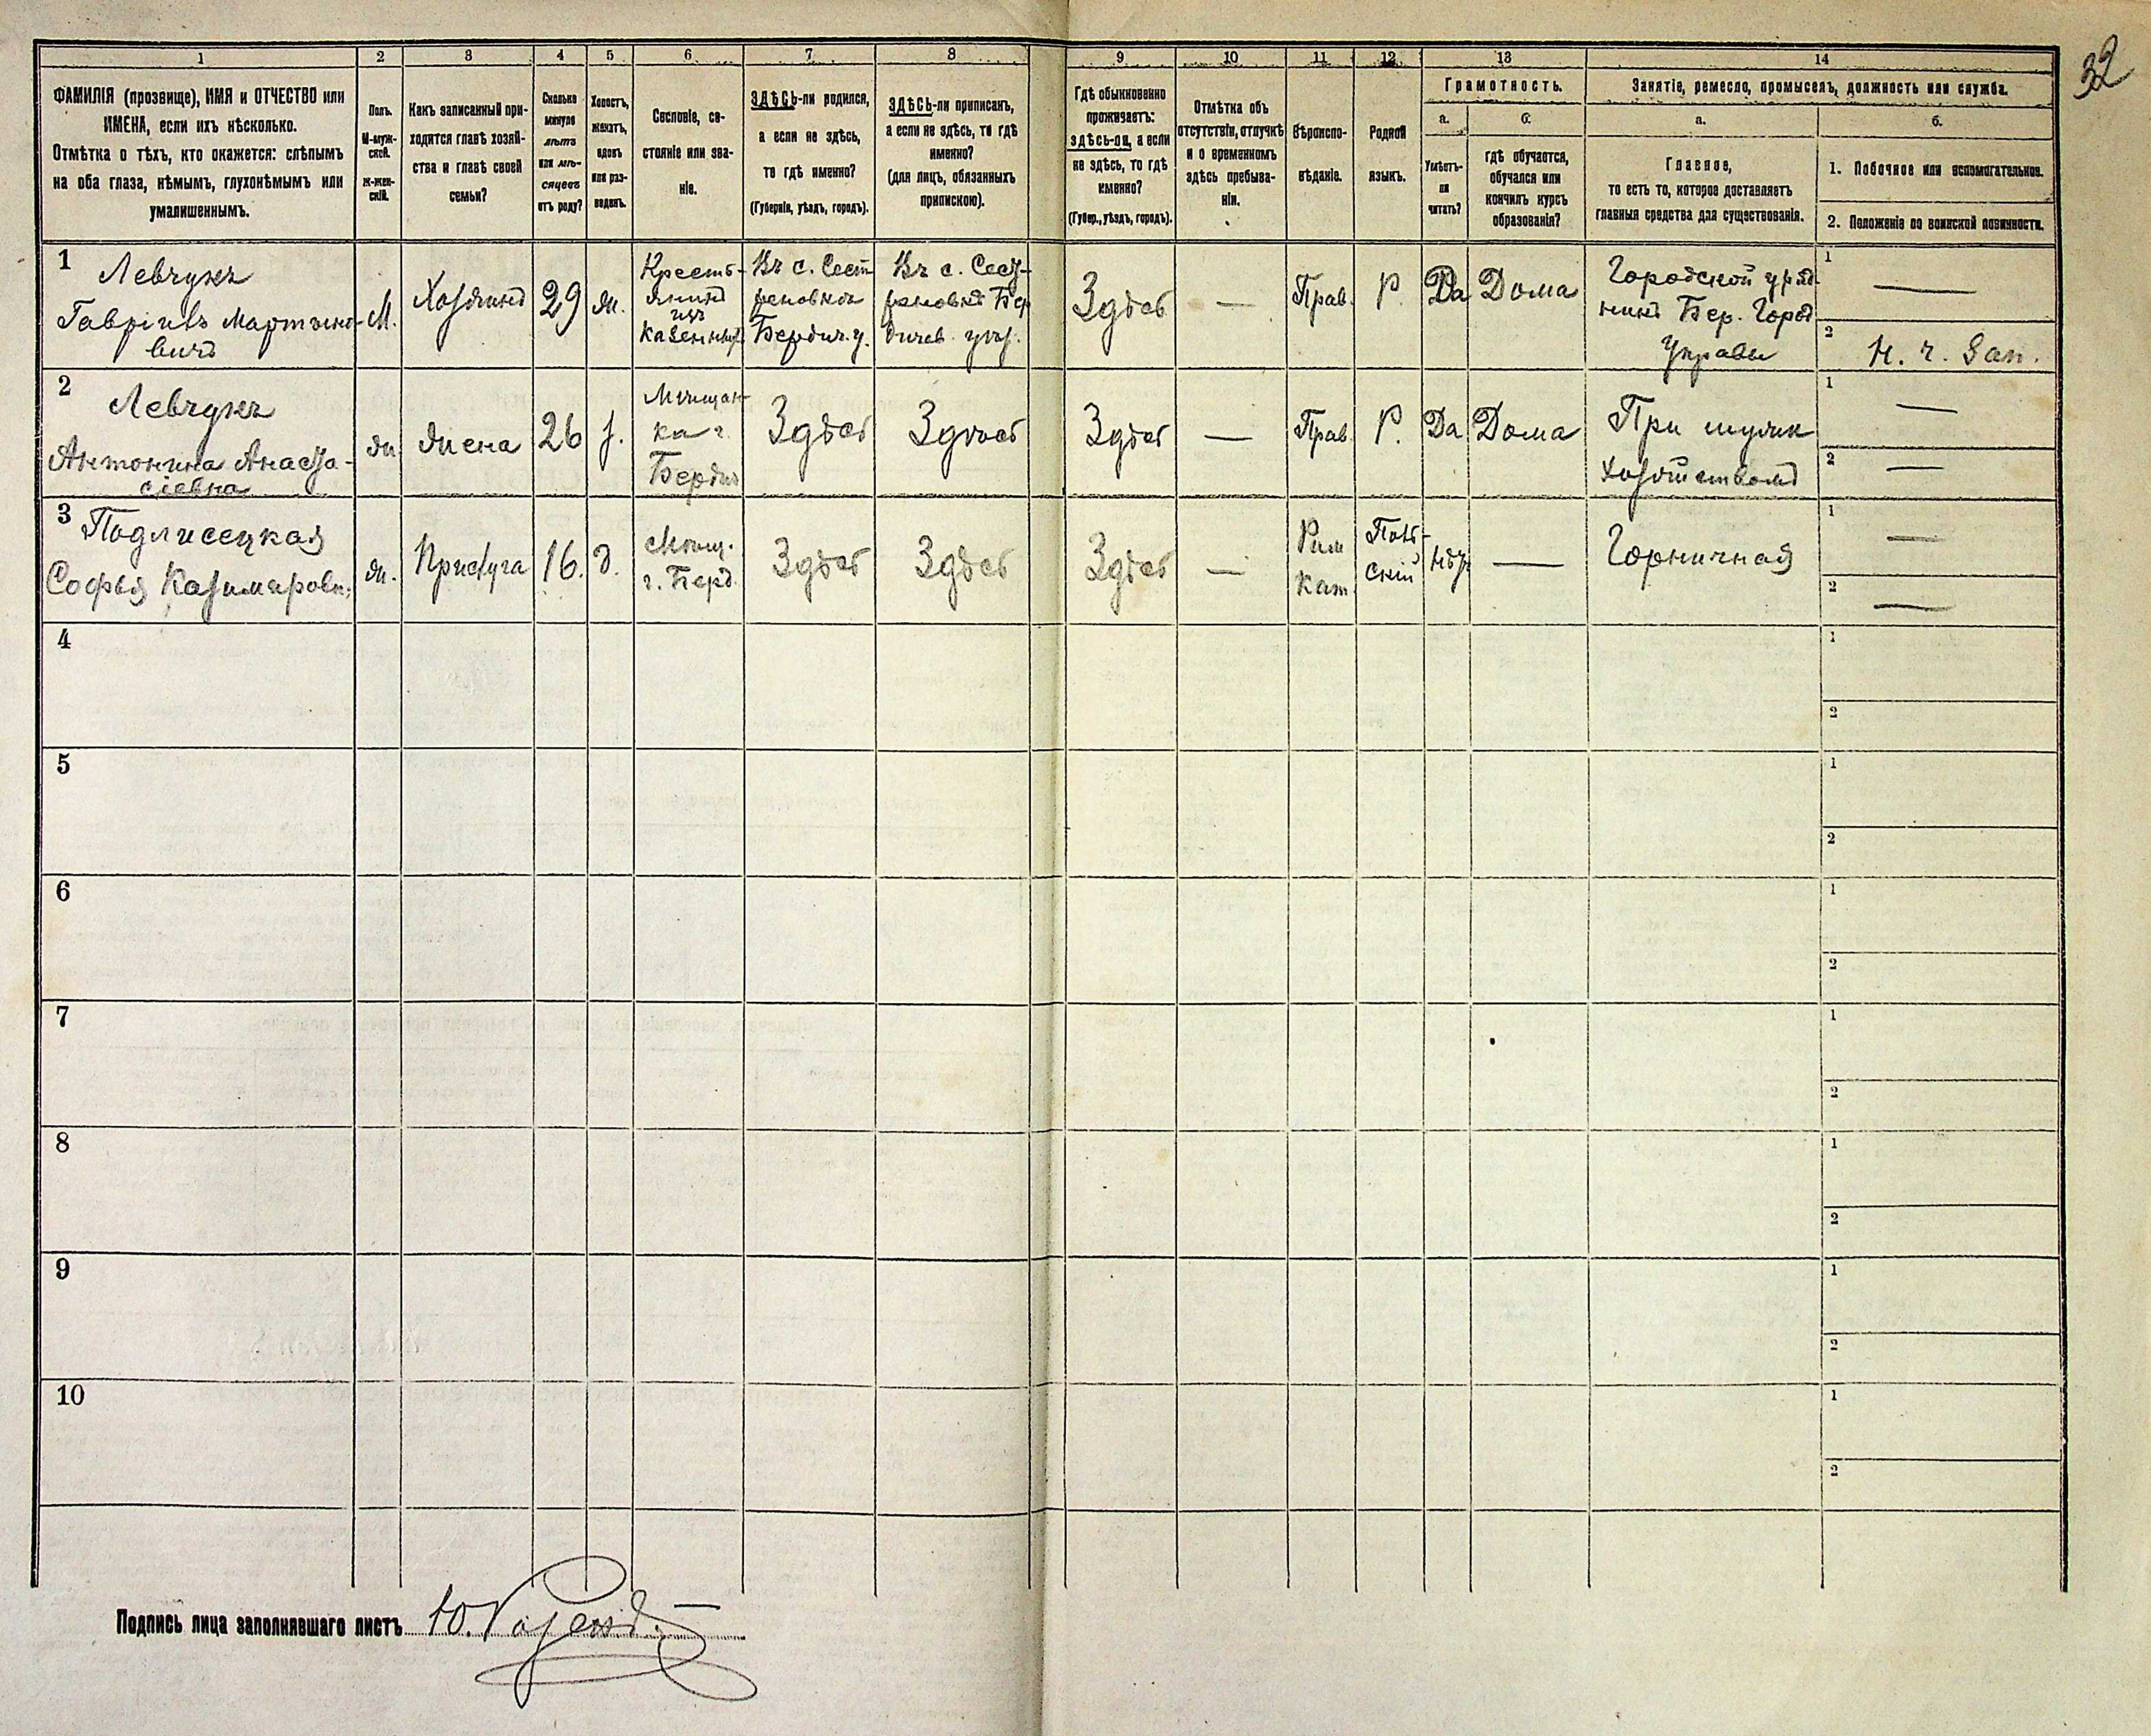 32
1 2 3 4 5 6 7 8 9 10 11 12 13 14
ФАМИЛІЯ (прозвище), ИМЯ и ОТЧЕСТВО или
ИМЕНА, если ихъ нѣсколько.
Отмѣтка о тѣхъ, кто окажется: слѣпымъ
на оба глаза, нѣмымъ, глухонѣмымъ или
умалишеннымъ.
Полъ.
М-муж-
ской.
Ж-жен-
скій.
Какъ записанный при-
ходится главѣ хозяй-
ства и главѣ своей
семьи?
Сколько
минуло
лѣтъ
или мѣ-
сяцевъ
отъ роду?
Холостъ,
женатъ,
вдовъ
или раз-
веденъ.
Сословіе, со-
стояніе или зва-
ніе.
ЗДѢСЬ-ли родился,
а если не здѣсь,
то гдѣ именно?
(Губернія, уѣздъ, городъ).
ЗДѢСЬ-ли приписанъ,
а если не здѣсь, то гдѣ
именно?
(для лицъ, обязанныхъ
припискою).
Гдѣ обыкновенно
проживаетъ:
здѣсь-ли, а если
не здѣсь, то гдѣ
именно?
(Губер., уѣздъ, городъ).
Отмѣтка объ
отсутствіи, отлучкѣ
и о временномъ
здѣсь пребыва-
ніи.
Вѣроиспо-
вѣданіе.
Родной
языкъ.
Грамотность.
а.
Умѣетъ-
ли
читать?
б.
гдѣ обучается,
обучался или
кончилъ курсъ
образованія?
Занятіе, ремесло, промыселъ, должность или служба.
а.
Главное,
то есть то, которое доставляетъ
главныя средства для существованія.
б.
1. Побочное или вспомогательное.
2. Положеніе по воинской повинности.
1
Левчукъ
Гавріилъ Мартино-
вичъ
М.
Хозяинъ
29
ж.
Кресть-
янинъ
изъ
казенныхъ
Въ с. Сест
реновкѣ
Бердич. у.
Въ с. Сест-
реновкѣ Бер
дичев. уѣз.
Здѣсь
—
Прав.
Р.
Да
Дома
Городской уряд
никъ Бер. Город
Управы
1 —
2 Н. ч. Зап.
2
Левчукъ
Антонина Анаста-
сіевна
ж
жена
26
з.
Мѣщан-
ка г.
Бердич
Здѣсь
Здѣсь
Здѣсь
—
Прав.
Р.
Да
Дома
При мужѣ
хозяйствомъ
1 —
2 —
3
Подлисецкая
Софья Казимировн.
ж.
Прислуга
16.
д.
Мѣщ.
г. Берд.
Здѣсь
Здѣсь
Здѣсь
—
Рим
кат.
Поль-
скій
нѣтъ
—
Горничная
1 —
2 —
4
1
2
5
1
2
6
1
2
7
1
2
8
1
2
9
1
2
10
1
2
Подпись лица заполнявшаго листъ